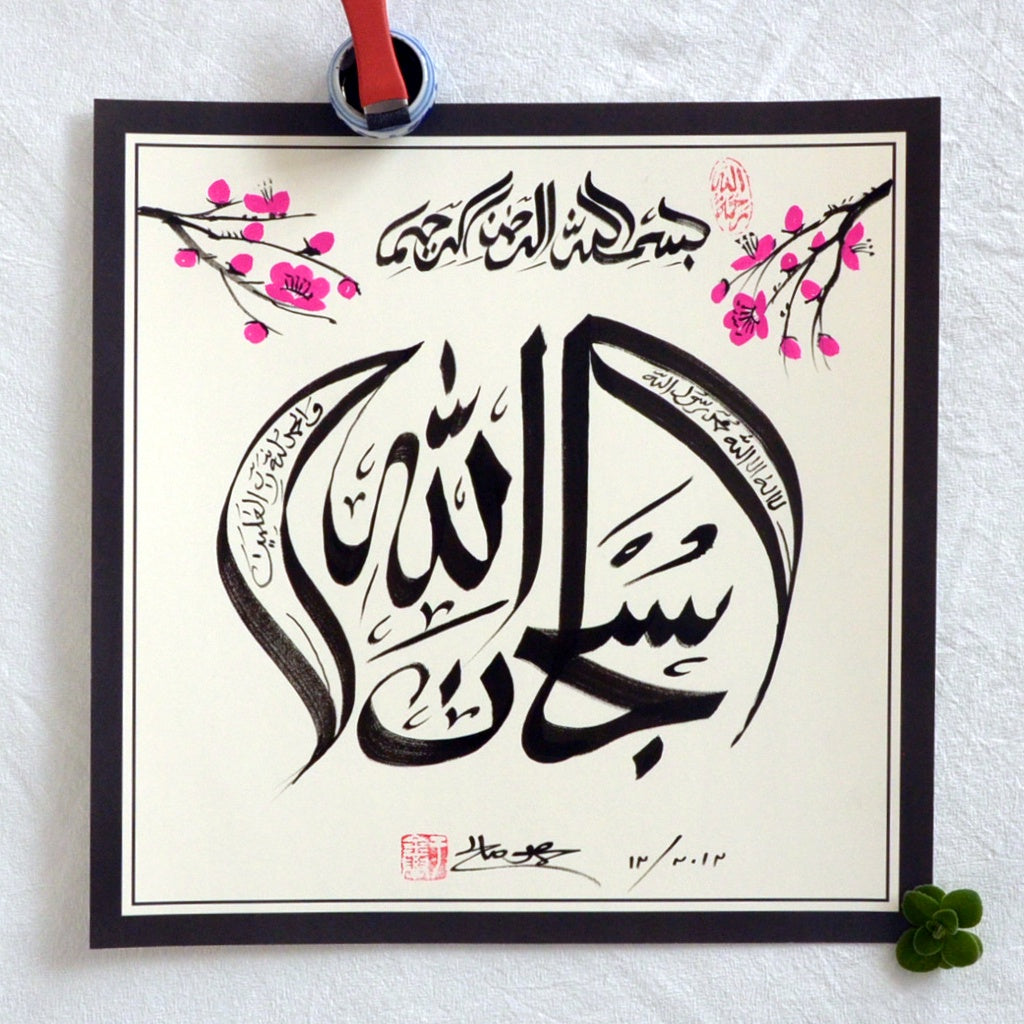 بسم الله الرحمن الرحيم
لا إله إلا الله محمد رسول الله
سبحان الله
والحمد لله رب العلمين
١٢/٢٠١٢